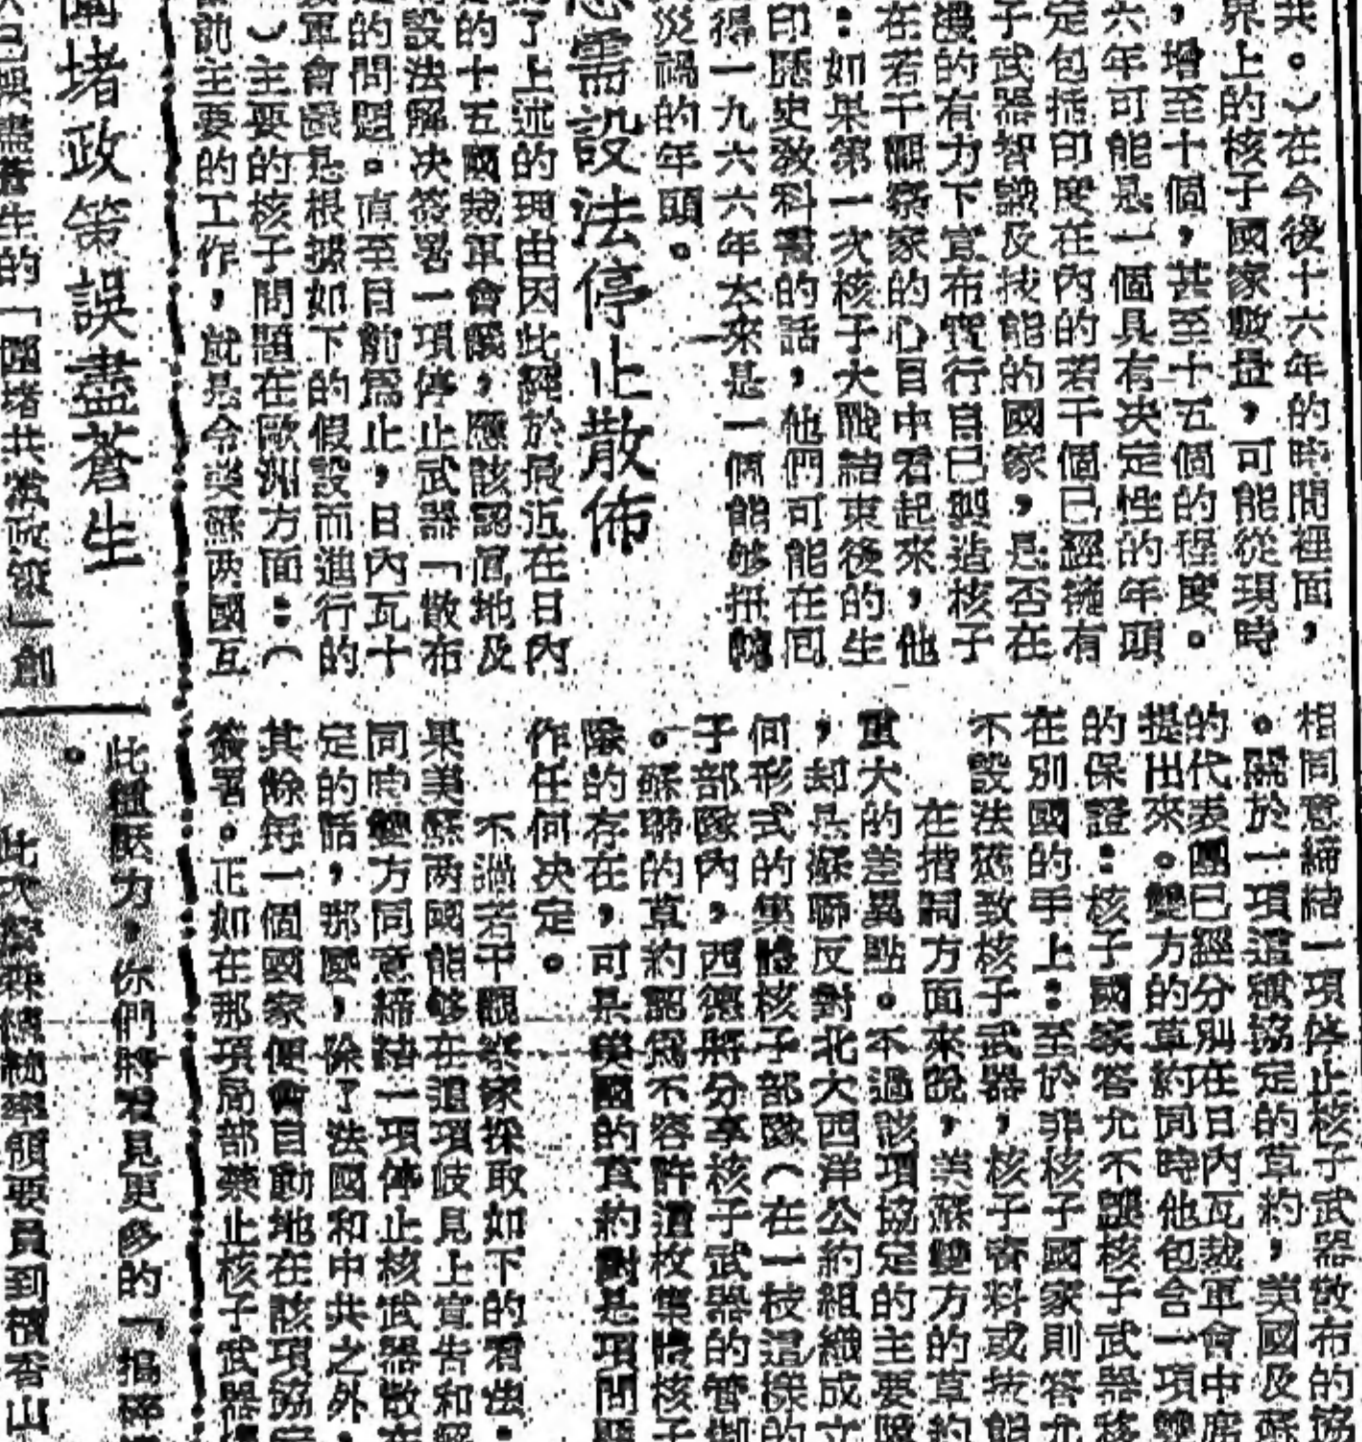 共。)在今後十六年的時間裡面，
界上的核子國家數量，可能從現時
，增至十個，甚至十五個的程度。
六年可能是一個具有決定性的年頭
定包括印度在內的若干個已經擁有
子武器智識及技能的國家，是否在
的有力下宣布實行自己製造核子
在若干觀察家的心目中看起來，他
：如果第一次核子大戰結束後的生
印歷史教科書的話，他們可能在回
得一九六六年本來是一個能够
災禍的年頭。
需設法停止散佈
了上述的理由因此經於最近在日內
的十五國裁軍會議，應該認真地及
設法解决簽署一項停止武器「散布
的問題。直至目前爲止，日內瓦十
軍會議是根據如下的假設而進行的
）主要的核子問題在歐洲方面：（
前主要的工作，就是令美蘇两國互
堵政策誤盡蒼生
盡蒼生的「圍堵共黨政策」創
相同意締結一項停止核子武器散布的協
。關於一項這種協定的草約，美國及蘇
的代表團已經分別在日內瓦裁軍會中席
提出來。雙方的草約同時他包含一項雙
的保證：核子國家答允不讓核子武器移
在別國的手上：至於非核子國家則答允
不設法獲致核子武器，核子資料或技能
在措詞方面來說，美蘇雙方的草約
重大的差異點。不過該項協定的主要
，却是蘇聯反對北大西洋公約組織成立
何形式的集體核子部隊（在一枝這樣的
子部隊內，西德將分享核子武器的管制
。蘇聯的草約認爲不容許這枚集體核子
隊的存在，可是美國的草約對是項問題
作任何決定。
不過若干觀察家採取如下的看法：
果美蘇两國能够在這項歧見上宣告和解
同時雙方同意締結一項停止核武器散布
定的話，那麼，除了法國和中共之外，
其餘每一個國家便會自動地在該項協定
簽署。正如在那項局部禁止核子武器
此種壓力，你們將看見更多的「搗碎
。
此次 總統率領要員到檀香山